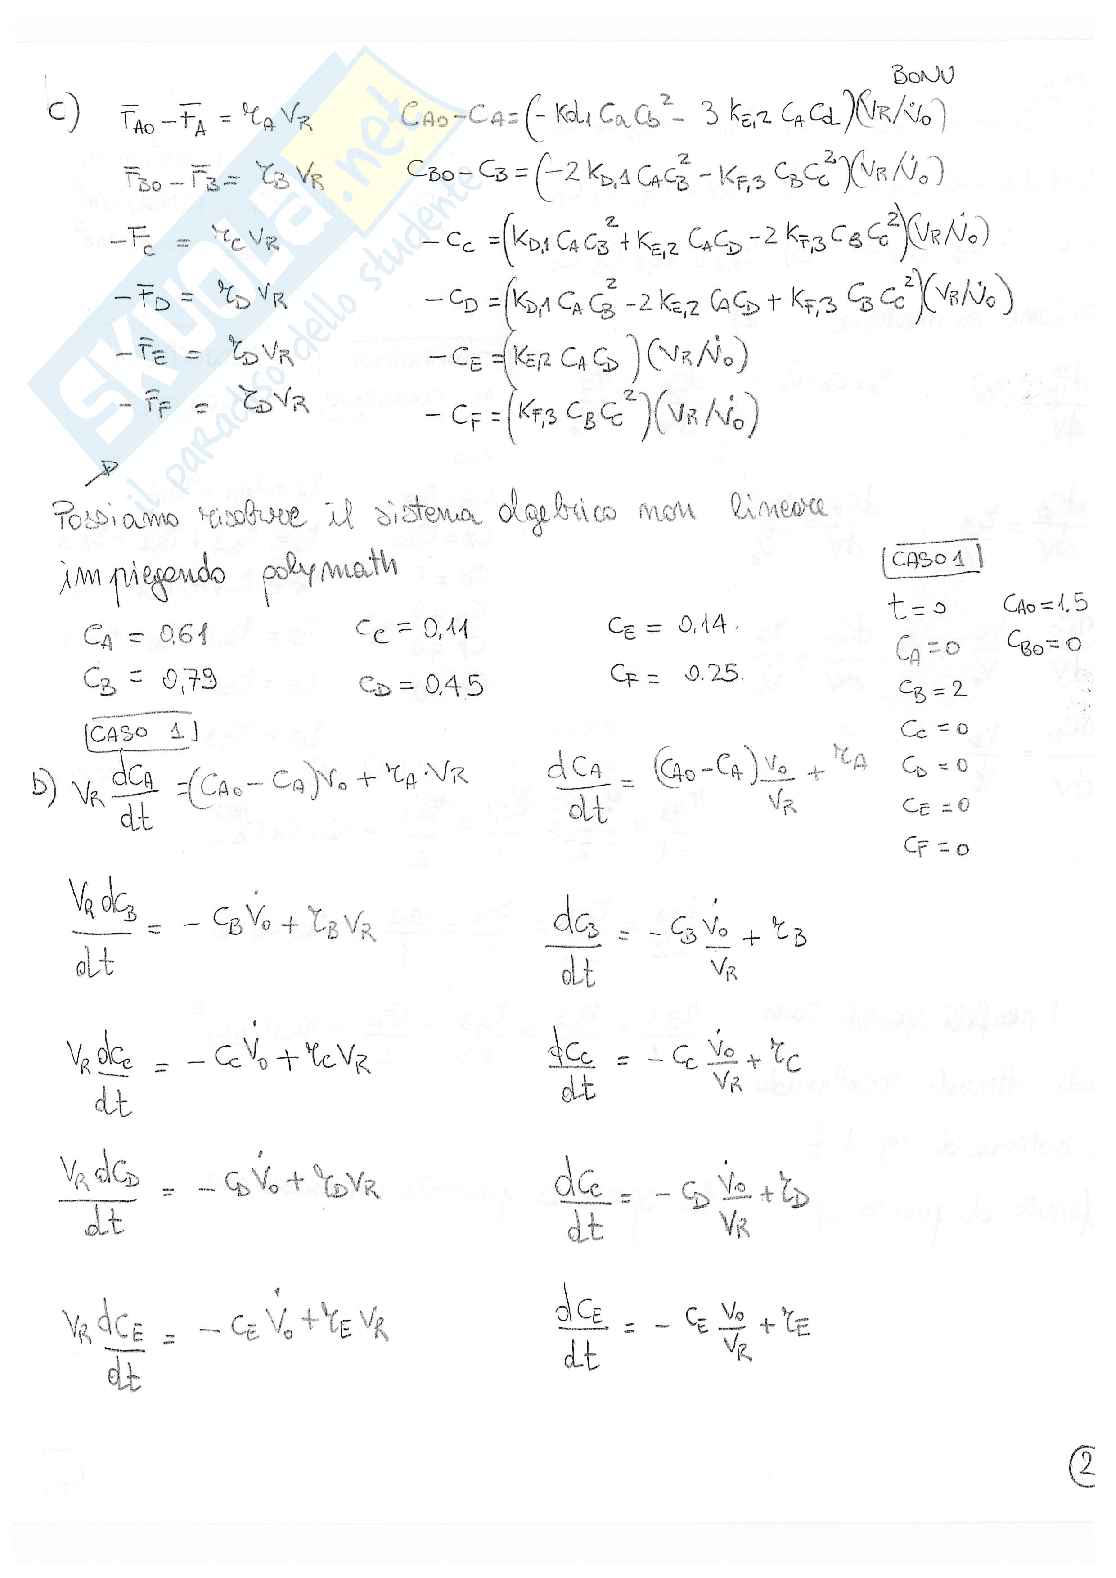 BONU
c) F̄A0 - F̄A = rA VR    CA0 - CA = (- Kd1 Ca Cb² - 3 KE,2 CA Cd)(VR/V̇0)
F̄B0 - F̄B = rB VR    CB0 - CB = (-2 KD,1 CA CB² - KF,3 CB CC²)(VR/V̇0)
- F̄C = rC VR    - CC = (KD,1 CA CB² + KE,2 CA CD - 2 KF,3 CB CC²)(VR/V̇0)
- F̄D = rD VR    - CD = (KD,1 CA CB² - 2 KE,2 CA CD + KF,3 CB CC²)(VR/V̇0)
- F̄E = rD VR    - CE = (KE,2 CA CD)(VR/V̇0)
- F̄F = rD VR    - CF = (KF,3 CB CC²)(VR/V̇0)
SKUOLA.net
il paradiso dello studente
Possiamo risolvere il sistema algebrico non lineare
impiegando polymath
CA = 0.61    CC = 0,11    CE = 0,14.
CB = 0,79    CD = 0,45    CF = 0.25.
CASO 1
t = 0    CA0 = 1.5
CA = 0    CB0 = 0
CB = 2
CC = 0
CD = 0
CE = 0
CF = 0
CASO 1
b) VR dCA/dt = (CA0 - CA) V0 + rA · VR    dCA/dt = (CA0 - CA) V0/VR + rA
VR dCB/dt = - CB V̇0 + rB VR    dCB/dt = - CB V̇0/VR + rB
VR dCC/dt = - CC V̇0 + rC VR    dCC/dt = - CC V̇0/VR + rC
VR dCD/dt = - CD V̇0 + rD VR    dCC/dt = - CD V̇0/VR + rD
VR dCE/dt = - CE V̇0 + rE VR    dCE/dt = - CE V0/VR + rE
2